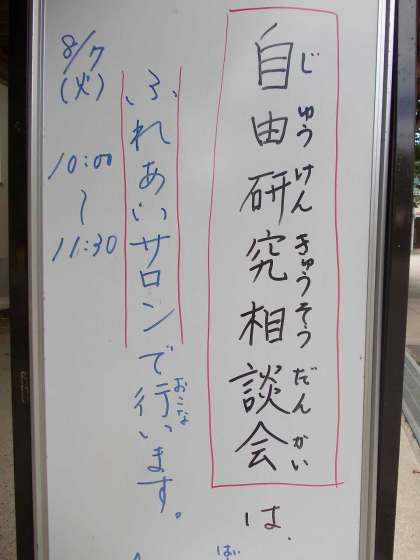 自由研究相談会は、
じゆうけんきゅうそうだんかい
ふれあいサロンで行います。
おこな
8/7
(火)
10:00
〜
11:30